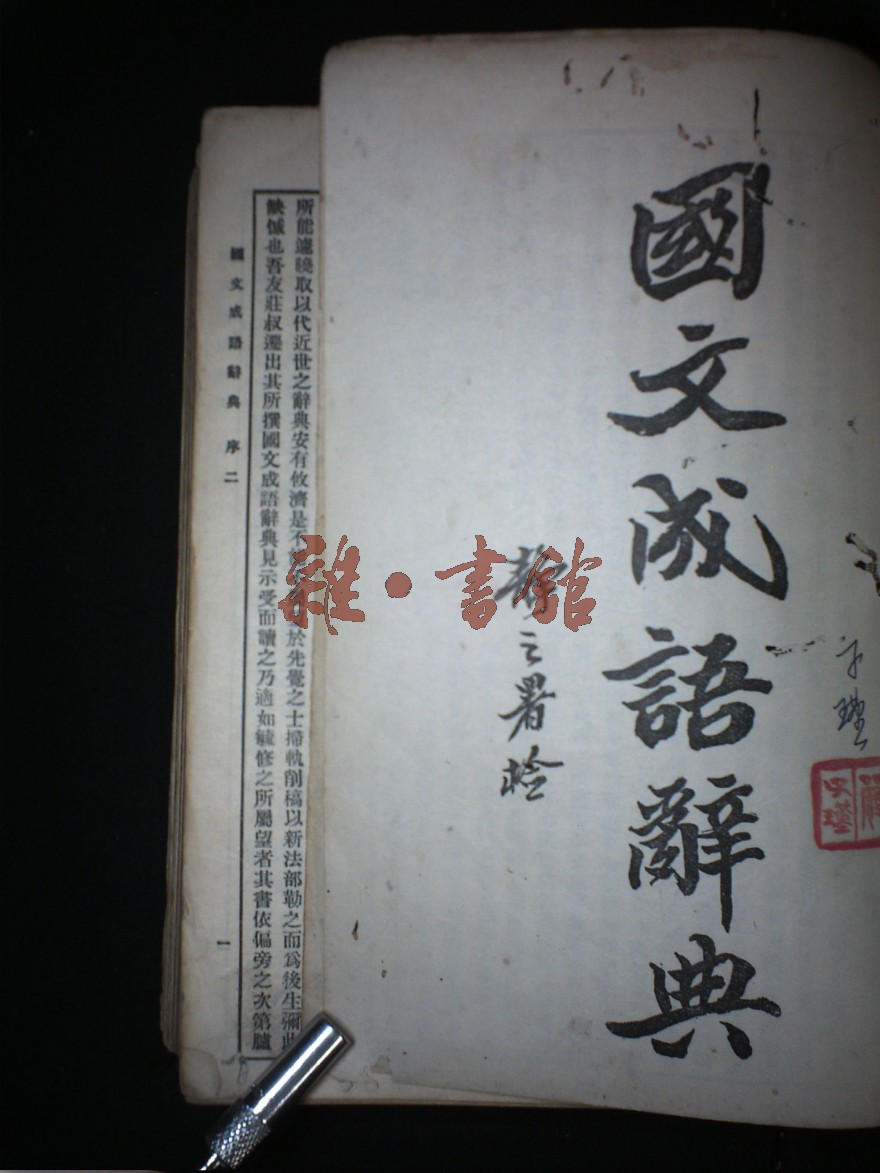 國文成語辭典
之署檢
子璞
所能遽曉取以代近世之辭典安有攸濟是不
於先覺之士擩執削槁以新法部勒之而爲後生彌此
缺憾也吾友莊叔遷出其所撰國文成語辭典見示受而讀之乃適如毓修之所屬望者其書依偏旁之次第臚
國文成語辭典 序二
一
雜·書館